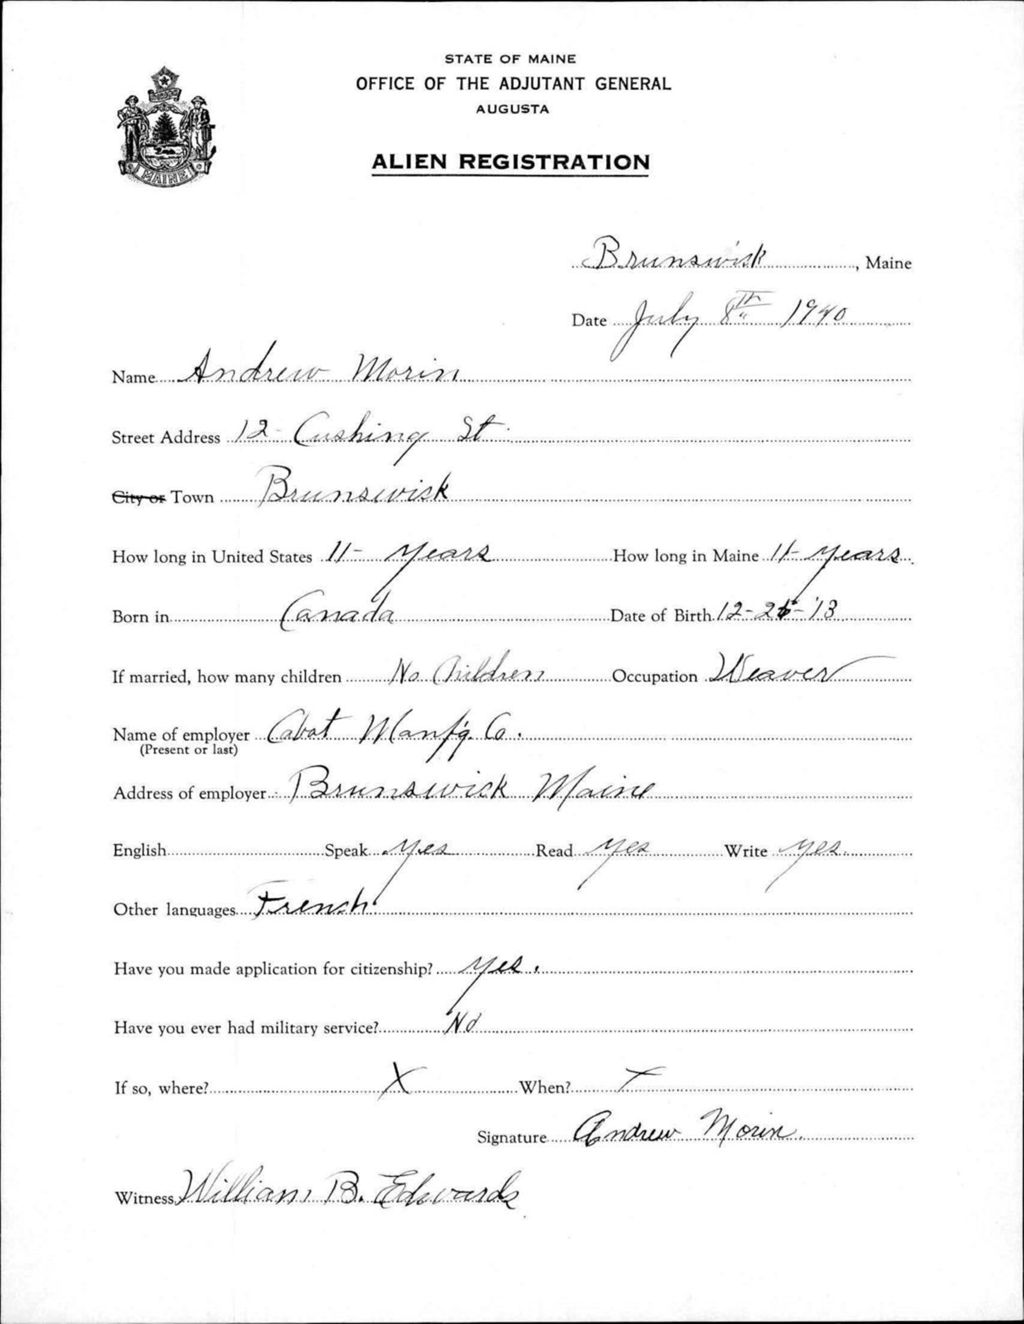 STATE OF MAINE
OFFICE OF THE ADJUTANT GENERAL
AUGUSTA
ALIEN REGISTRATION
MAINE
Brunswick, Maine
Date July 8th 1940
Name Andrew Morin
Street Address 12 Cushing St.
City or Town Brunswick
How long in United States 11 - years How long in Maine 11 - years
Born in Canada Date of Birth 12 - - '13
If married, how many children No Children Occupation Weaver
Name of employer Cabot Manf'g. Co.
(Present or last)
Address of employer Brunswick Maine
English Speak yes Read yes Write yes.
Other languages French
Have you made application for citizenship? yes.
Have you ever had military service? No
If so, where? X When? X
Signature Andrew Morin.
Witness William B. Edwards